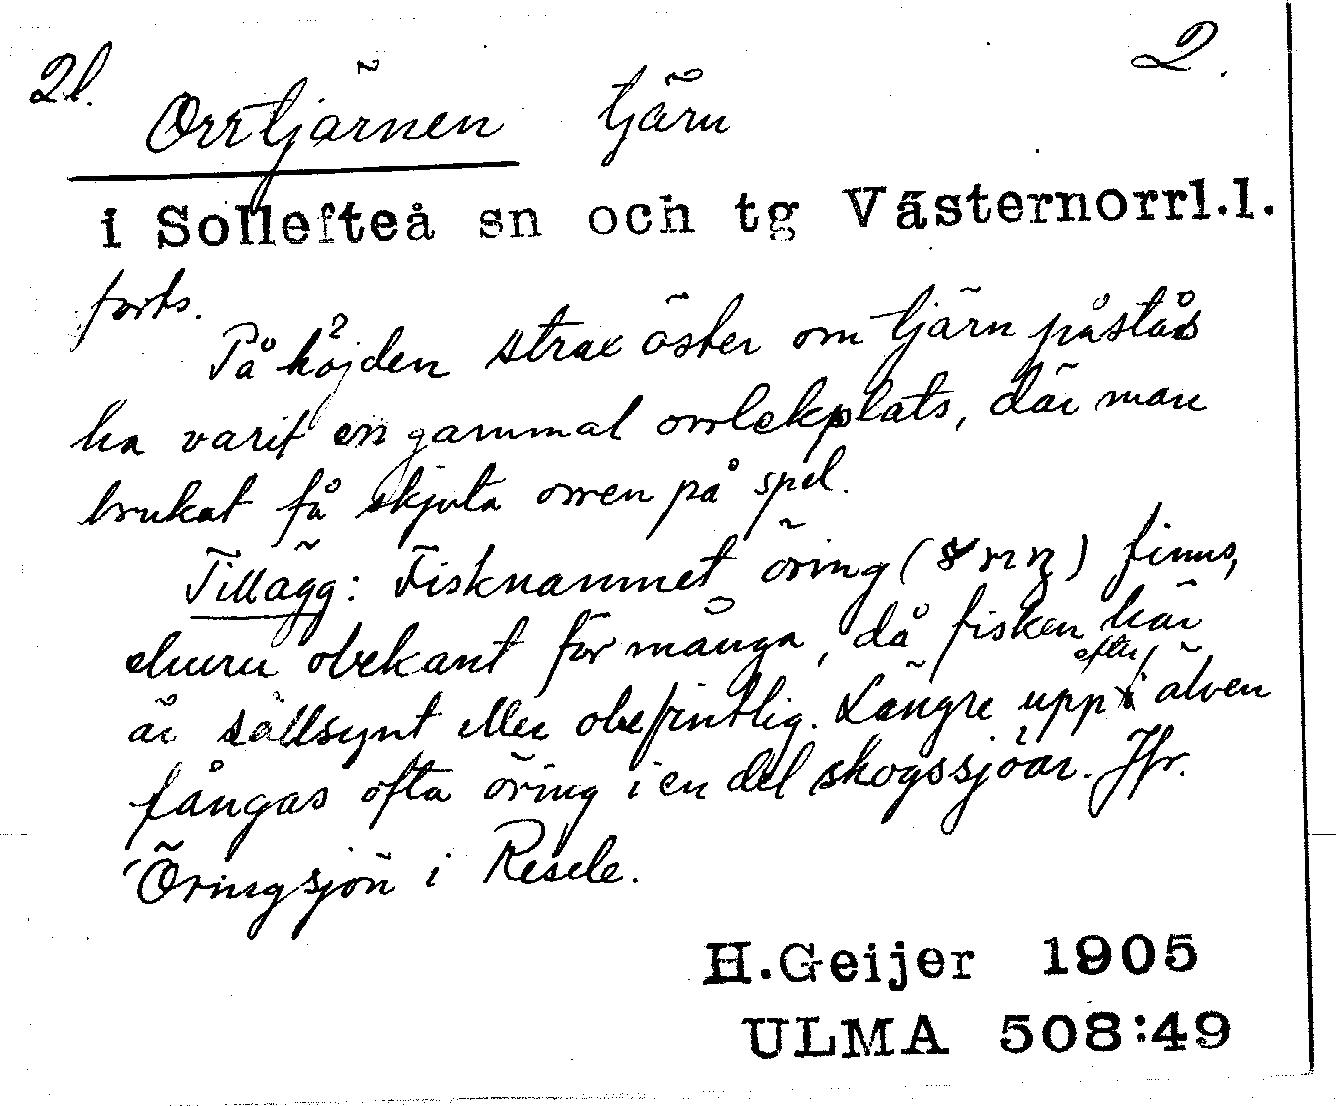 2l. 2.
Orrtjärnen tjärn
i Sollefteå sn och tg Västernorrl.l.
forts.
På höjden strax öster om tjärn påstås
ha varit en gammal orrlekplats, där man
brukat få skjuta orren på spel.
Tillägg: Fisknamnet öring ( ) finns,
ehuru obekant för många, då fisken här
är sällsynt eller obefintlig. Längre upp efter älven
fångas ofta öring i en del skogssjöar. Jfr.
Öringsjön i Resele.
H.Geijer 1905
ULMA 508:49